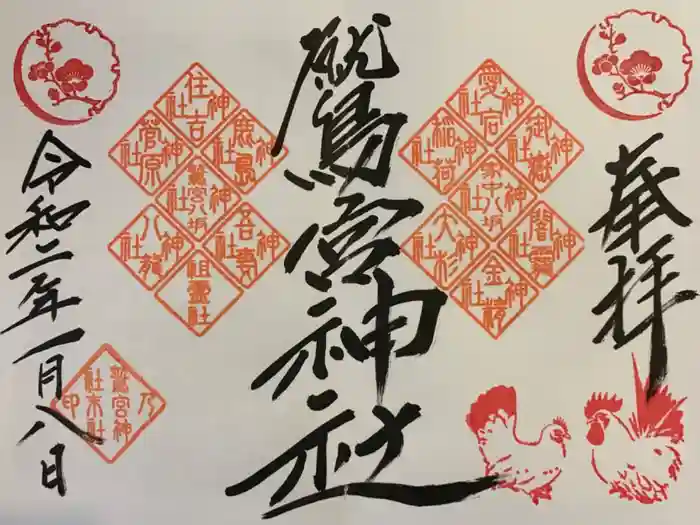 奉拝
愛宕神社
御嶽神社
稲荷神社
家中八坂神社
大杉神社
金精神社
鷲宮神社
住吉神社
鹿島神社
菅原神社
鷲宮八坂神社
吾妻神社
八龍神社
祖霊社
令和二年一月八日
鷲宮神社末社乃印